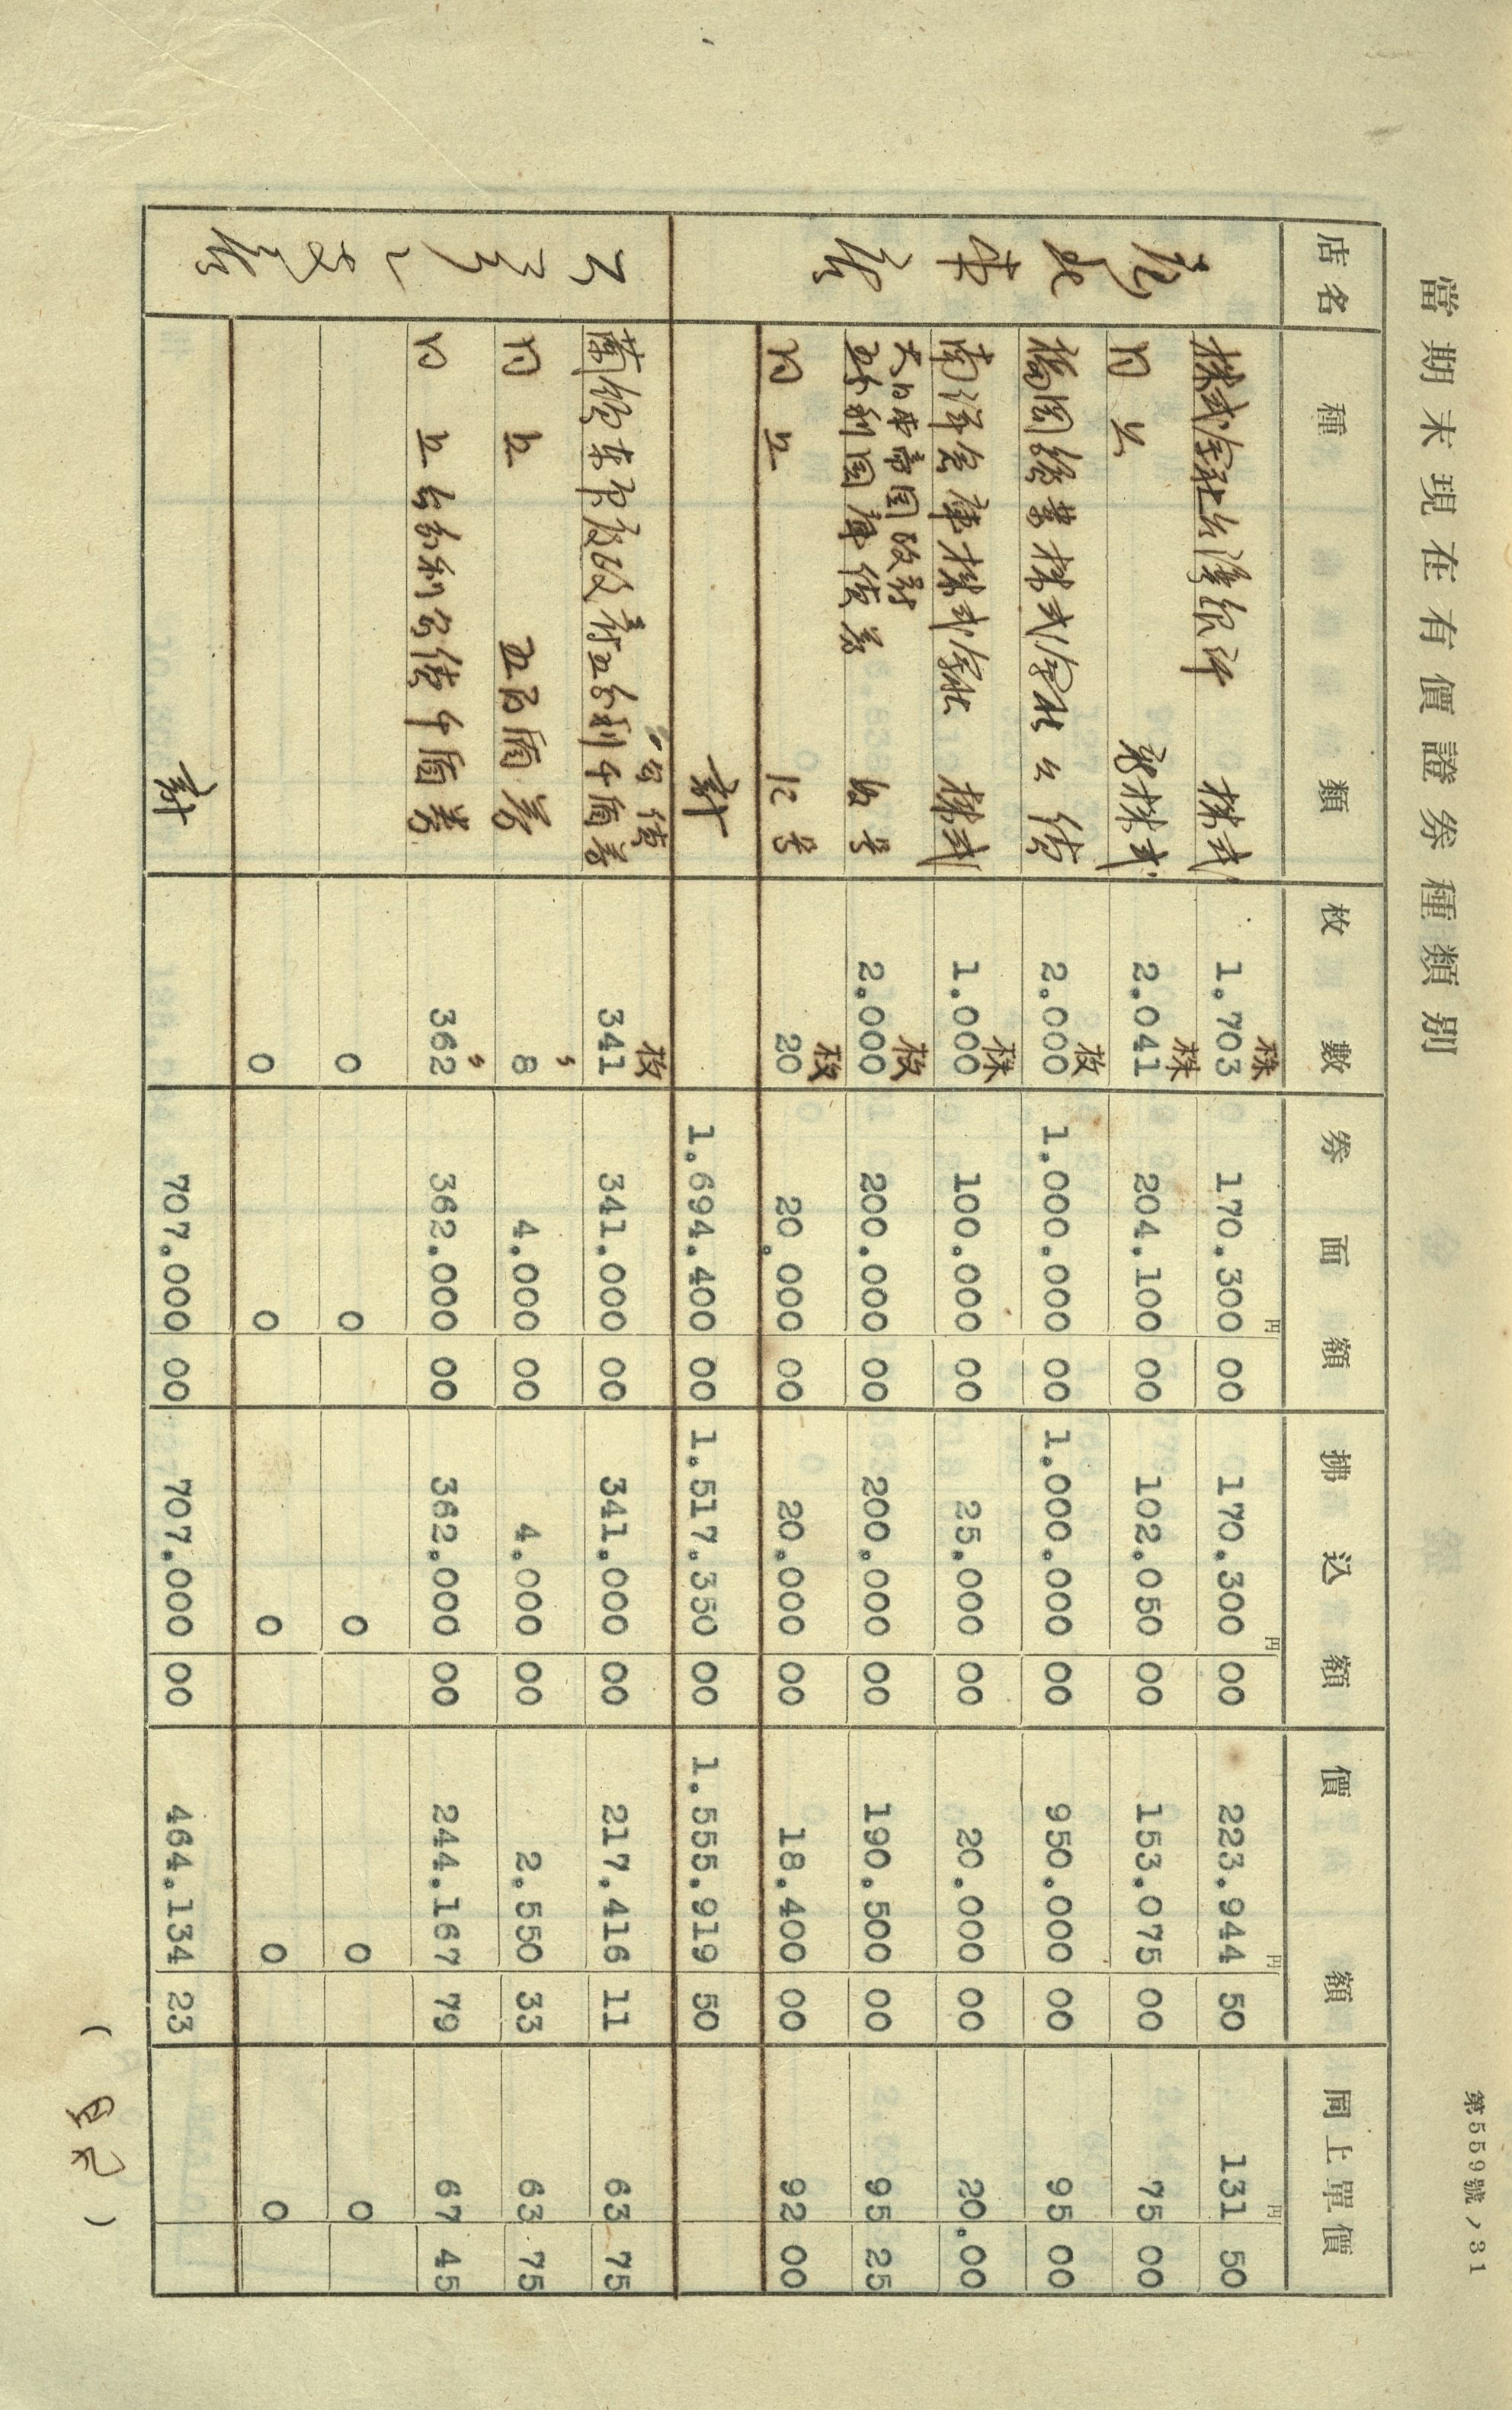 第559號ノ31
當期末現在有價證券種類別
店名 種類 枚數 券面額 拂込額 價額 同上單價
台北本店
株式会社台湾銀行 株式 1.703株 170.300円00 170.300円00 223.944円50 131円50
同上 新株式 2.041株 204.100 00 102.050 00 153.075 00 75 00
株式会社 公債 2.000枚 1.000.000 00 1.000.000 00 950.000 00 95 00
南洋倉庫株式会社 株式 1.000株 100.000 00 25.000 00 20.000 00 20.00
大日本帝国政府
五分利国庫債券 2.000枚 200.000 00 200.000 00 190.500 00 95 25
同上 20枚 20.000 00 20.000 00 18.400 00 92 00
計 1.694.400 00 1.517.350 00 1.555.919 50
蘭領東印度政府五分利千盾券
公債 341枚 341.000 00 341.000 00 217.416 11 63 75
同上 五百盾券 8〃 4.000 00 4.000 00 2.550 33 63 75
同上 分利公債千盾券 362〃 362.000 00 362.000 00 244.167 79 67 45
0 0 0 0 0
0 0 0 0 0
計 707.000 00 707.000 00 464.134 23